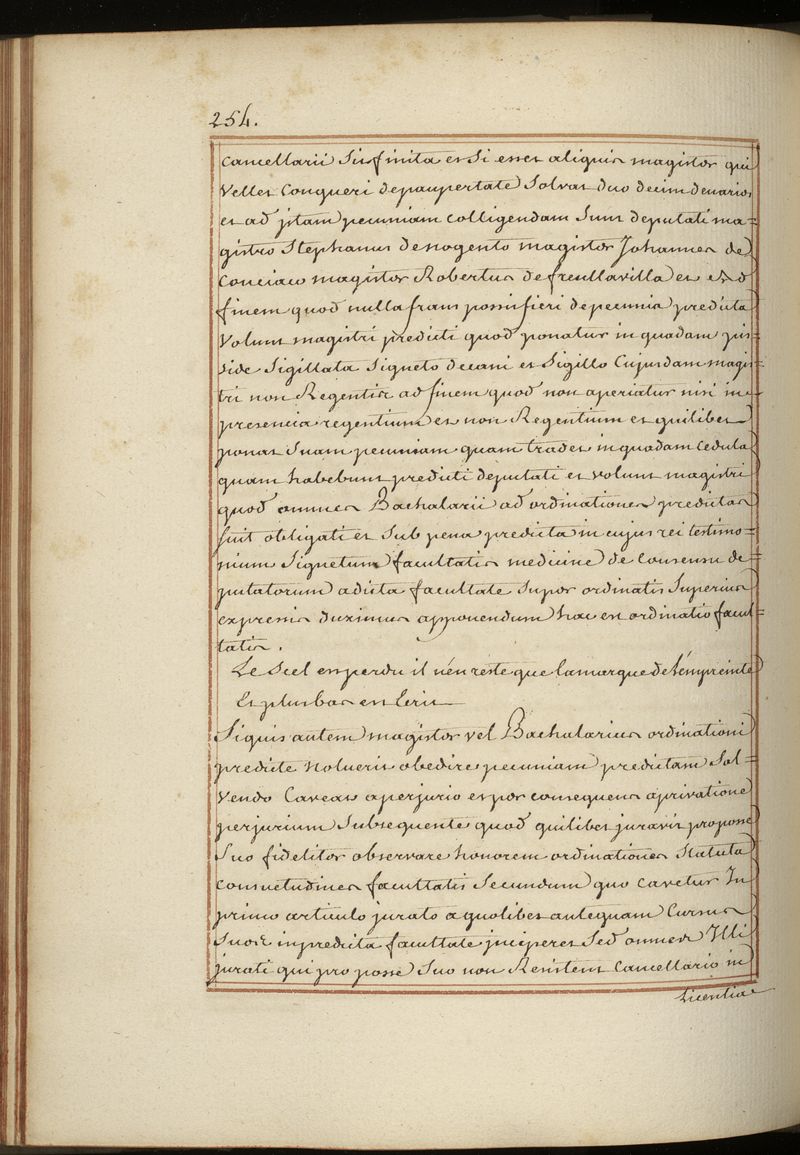 254.
Cancellarii Sit finita et Si esset aliquis magister qui
Vellet Conqueri de paupertate Solvat duo decim denarios
et ad jstam pecuniam colligendam Sunt deputati ma=
gistro Stephanus de nogento magister Johannes de
Conciaco magister Robertus de freullavilla et Ad
finem quod nulla fraus possit fieri de pecunia predicta
Volunt magistri predicti quod ponatur in quadam pis=
side Sigillata Signeto decani et Sigillo Cujusdam magis=
tri non Regentis ad finem quod non aperiatur nisi in
presencia regentium et non Regentium et quilibet
ponat Suam pecuniam quam tradet in quadam Cedula
quam habebunt predicti deputati et volunt magistri
quod omnes Bachalarii ad ordinationes predictas
sint obligati et Sub pena predicta in cujus rei testimo=
nium Signetum facultatis medicine de Consensu de=
putatorum a dicta facultate Super ordinatis Superius
expressis duximus apponendum hac est ordinatio facul=
tatis.
Le Scel est perdu il n'en reste que la marque de l'émpreinte
Et plus bas est Ecrit
Siquis autem magister vel Bachalarius ordinationi
predicte Noluerit obedire pecuniam predictam Sol=
Vendo Caveat a perjurio et per consequens a privatione
perjurium Subsequente quod quilibet juravit pro posse
Suo fideliter observare honorem ordinationes Statuta
Consuetudines facultatis Secundum quo cavetur In
primo articulo jurato a quolibet antequam Cursus
Suos in predicta facultate jnciperet Sed omnes Illi
jurati qui pro posse Suo non Resistent Cancellario in
Licentia